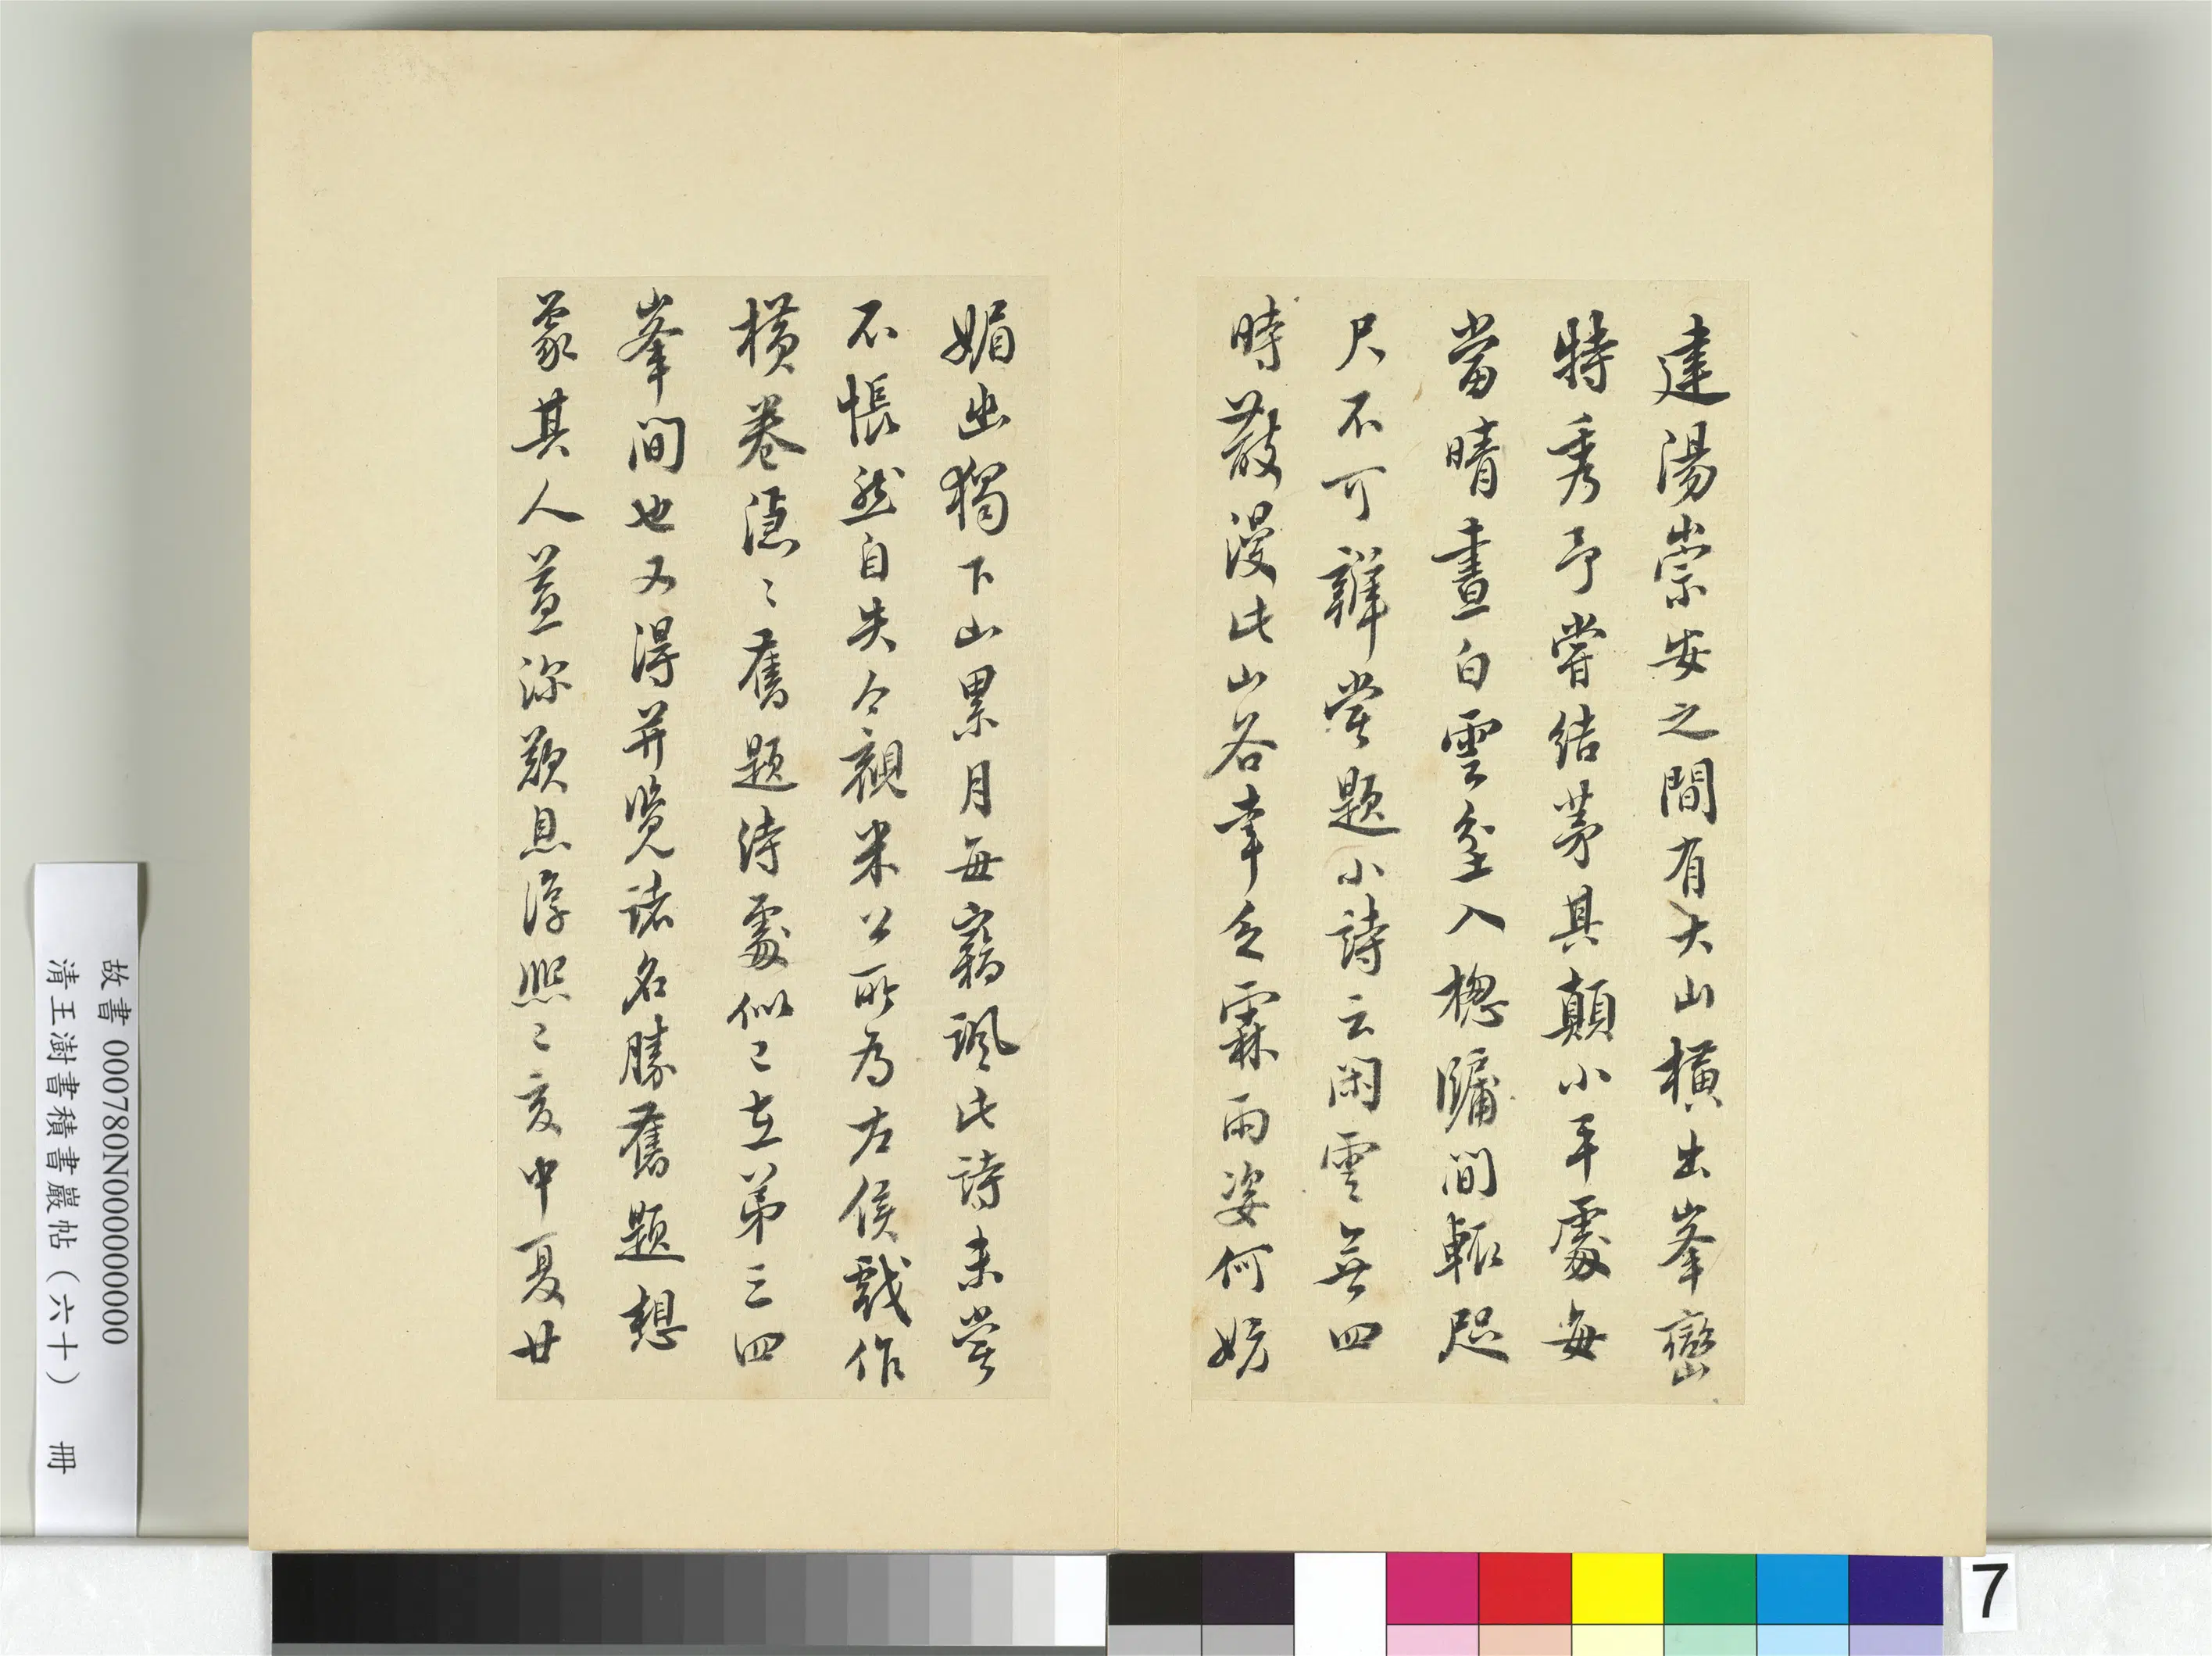 建陽崇安之間有大山橫出峯巒
特秀予嘗結茅其顛小平處每
當晴晝白雲坌入窻牖間輒咫
尺不可辨嘗題小詩云閑雲無四
時散漫此山谷幸乏霖雨姿何妨
媚幽獨下山累月每竊諷此詩未嘗
不悵然自失今觀米公所為左侯戲作
横卷隱〻舊題詩處似已在第三四
峯間也又得并覽諸名勝舊題想
象其人益深歎息淳熙己亥中夏廿
故書 000780N000000000
清王澍書積書巖帖(六十) 冊
7